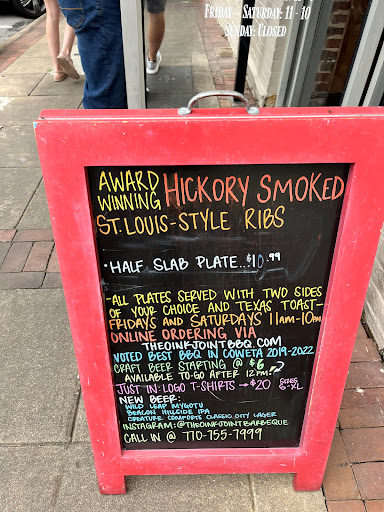 FRIDAY - SATURDAY: 11 - 10
SUNDAY: CLOSED
AWARD WINNING HICKORY SMOKED
ST. LOUIS-STYLE RIBS
• HALF SLAB PLATE...$10.99
-ALL PLATES SERVED WITH TWO SIDES
OF YOUR CHOICE AND TEXAS TOAST-
FRIDAYS AND SATURDAYS 11AM-10PM
ONLINE ORDERING VIA
THEOINKJOINTBBQ.COM
VOTED BEST BBQ IN COWETA 2019-2022
CRAFT BEER STARTING @ $6
AVAILABLE TO-GO AFTER 12PM!
JUST IN: LOGO T-SHIRTS → $20 SIZES S-XL
NEW BEER:
WILD LEAP MYGOTU
SCALON HILLSIDE IPA
CREATURE COMFORTS CLASSIC CITY LAGER
INSTAGRAM: @THEOINKJOINTBARBEQUE
CALL IN @ 770-755-7999